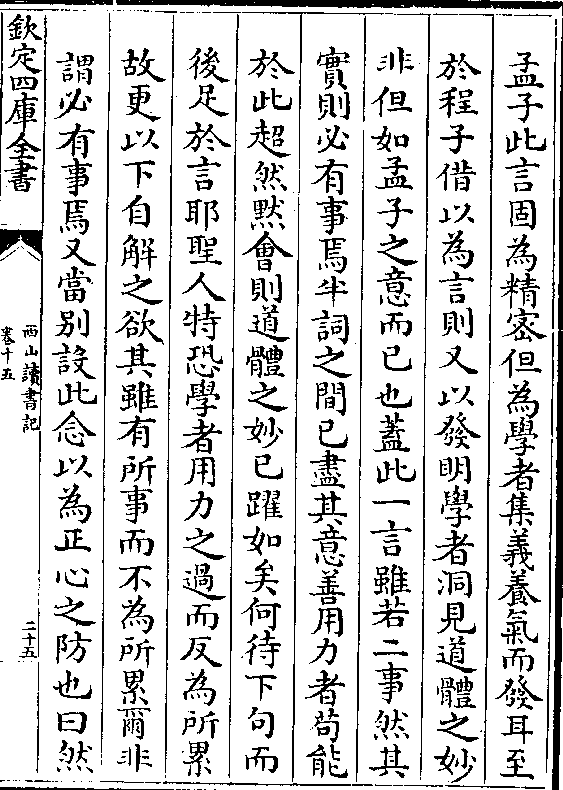 孟子此言固為精密但為學者集義養氣而發耳至
於程子借以為言則又以發明學者洞見道體之妙
非但如孟子之意而已也蓋此一言雖若二事然其
實則必有事焉半詞之間已盡其意善用力者苟能
於此超然黙會則道體之妙已躍如矣何待下句而
後足於言耶聖人特恐學者用力之過而反為所累
故更以下自解之欲其雖有所事而不為所累爾非
謂必有事焉又當别設此念以為正心之防也曰然
欽定四庫全書
西山讀書記
卷十五
二十五